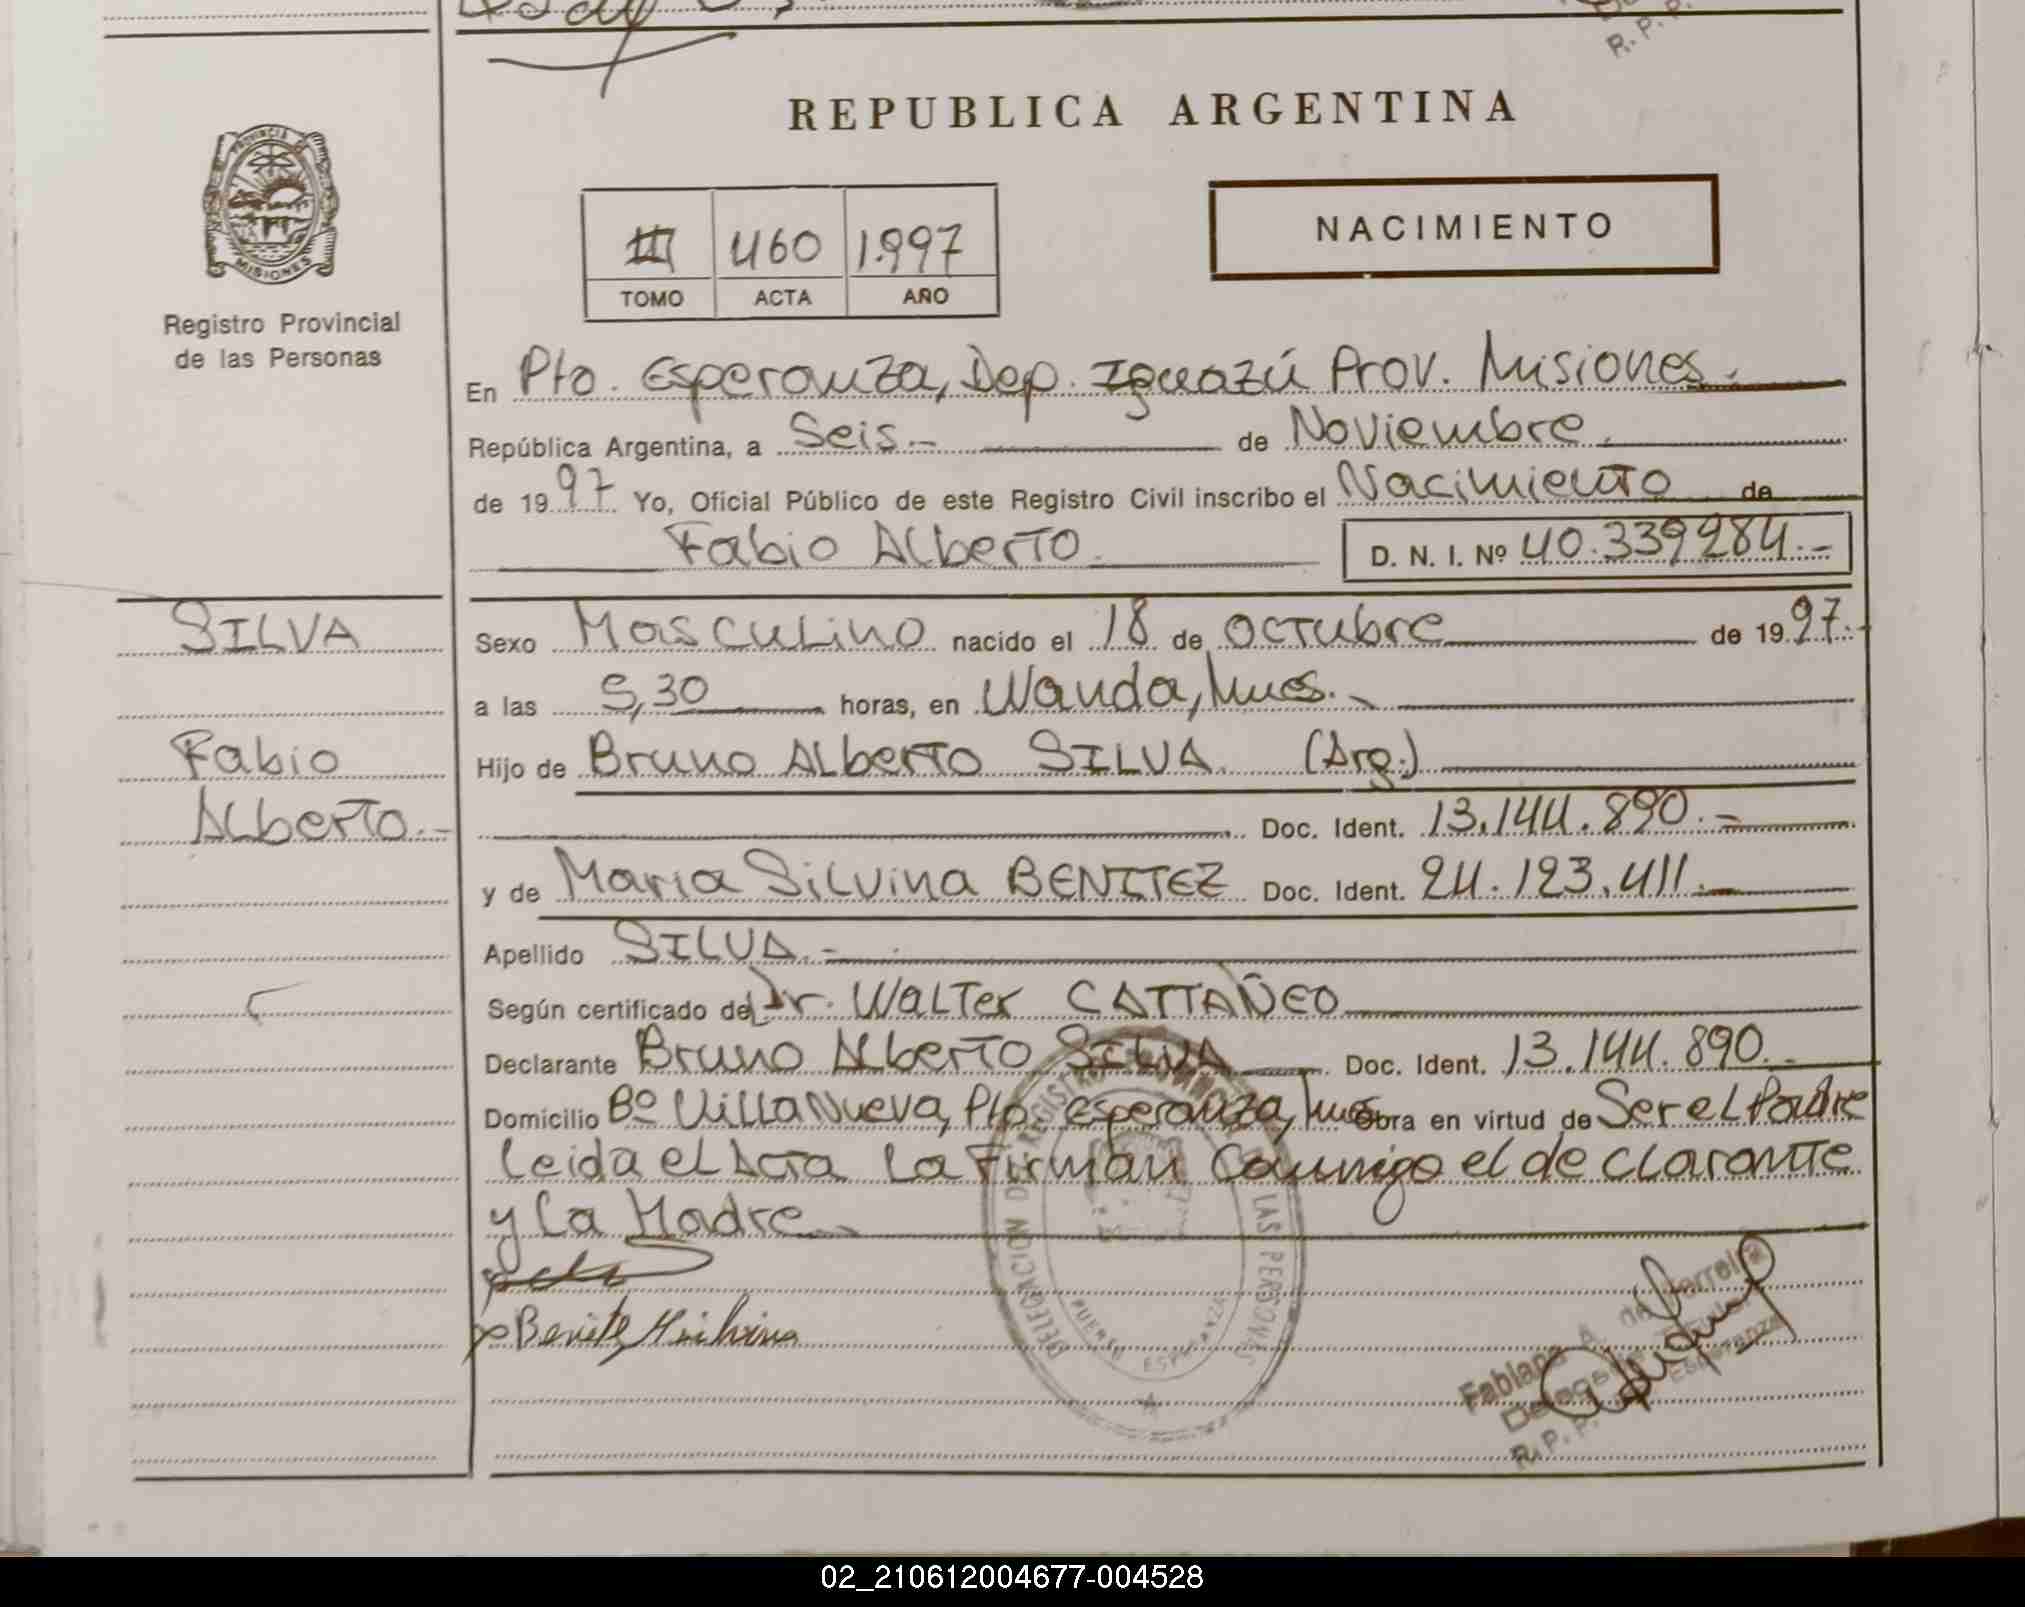 R. P. P.
REPUBLICA ARGENTINA
PROVINCIA
MISIONES
Registro Provincial
de las Personas
III 460 1.997
TOMO ACTA AÑO
NACIMIENTO
En Pto. Esperanza, Dep. Iguazú Prov. Misiones.-
República Argentina, a Seis.- de Noviembre.
de 1997 Yo, Oficial Público de este Registro Civil inscribo el Nacimiento de
Fabio Alberto. D. N. I. Nº 40.339284.-
SILVA
Fabio
Alberto.-
Sexo Masculino nacido el 18 de octubre de 1997.-
a las 5,30 horas, en Wanda, Mnes.-
Hijo de Bruno Alberto SILVA (Arg.)
Doc. Ident. 13.144.890.-
y de Maria Silvina BENITEZ Doc. Ident. 24.123.411.-
Apellido SILVA.-
Según certificado de Dr. Walter CATTAÑEO
Declarante Bruno Alberto SILVA Doc. Ident. 13.144.890.-
Domicilio Bº Villa Nueva, Pto. Esperanza, Mnes Obra en virtud de Ser el Padre
Leida el Acta La Firman Conmigo el declarante
y La Madre
Benite Silvina
DELEGACION DEL REGISTRO PROVINCIAL DE LAS PERSONAS
PUERTO ESPERANZA
Fabiana A. de Ferreira
Delegada Titular
R. P. P. Esperanza
02_210612004677-004528